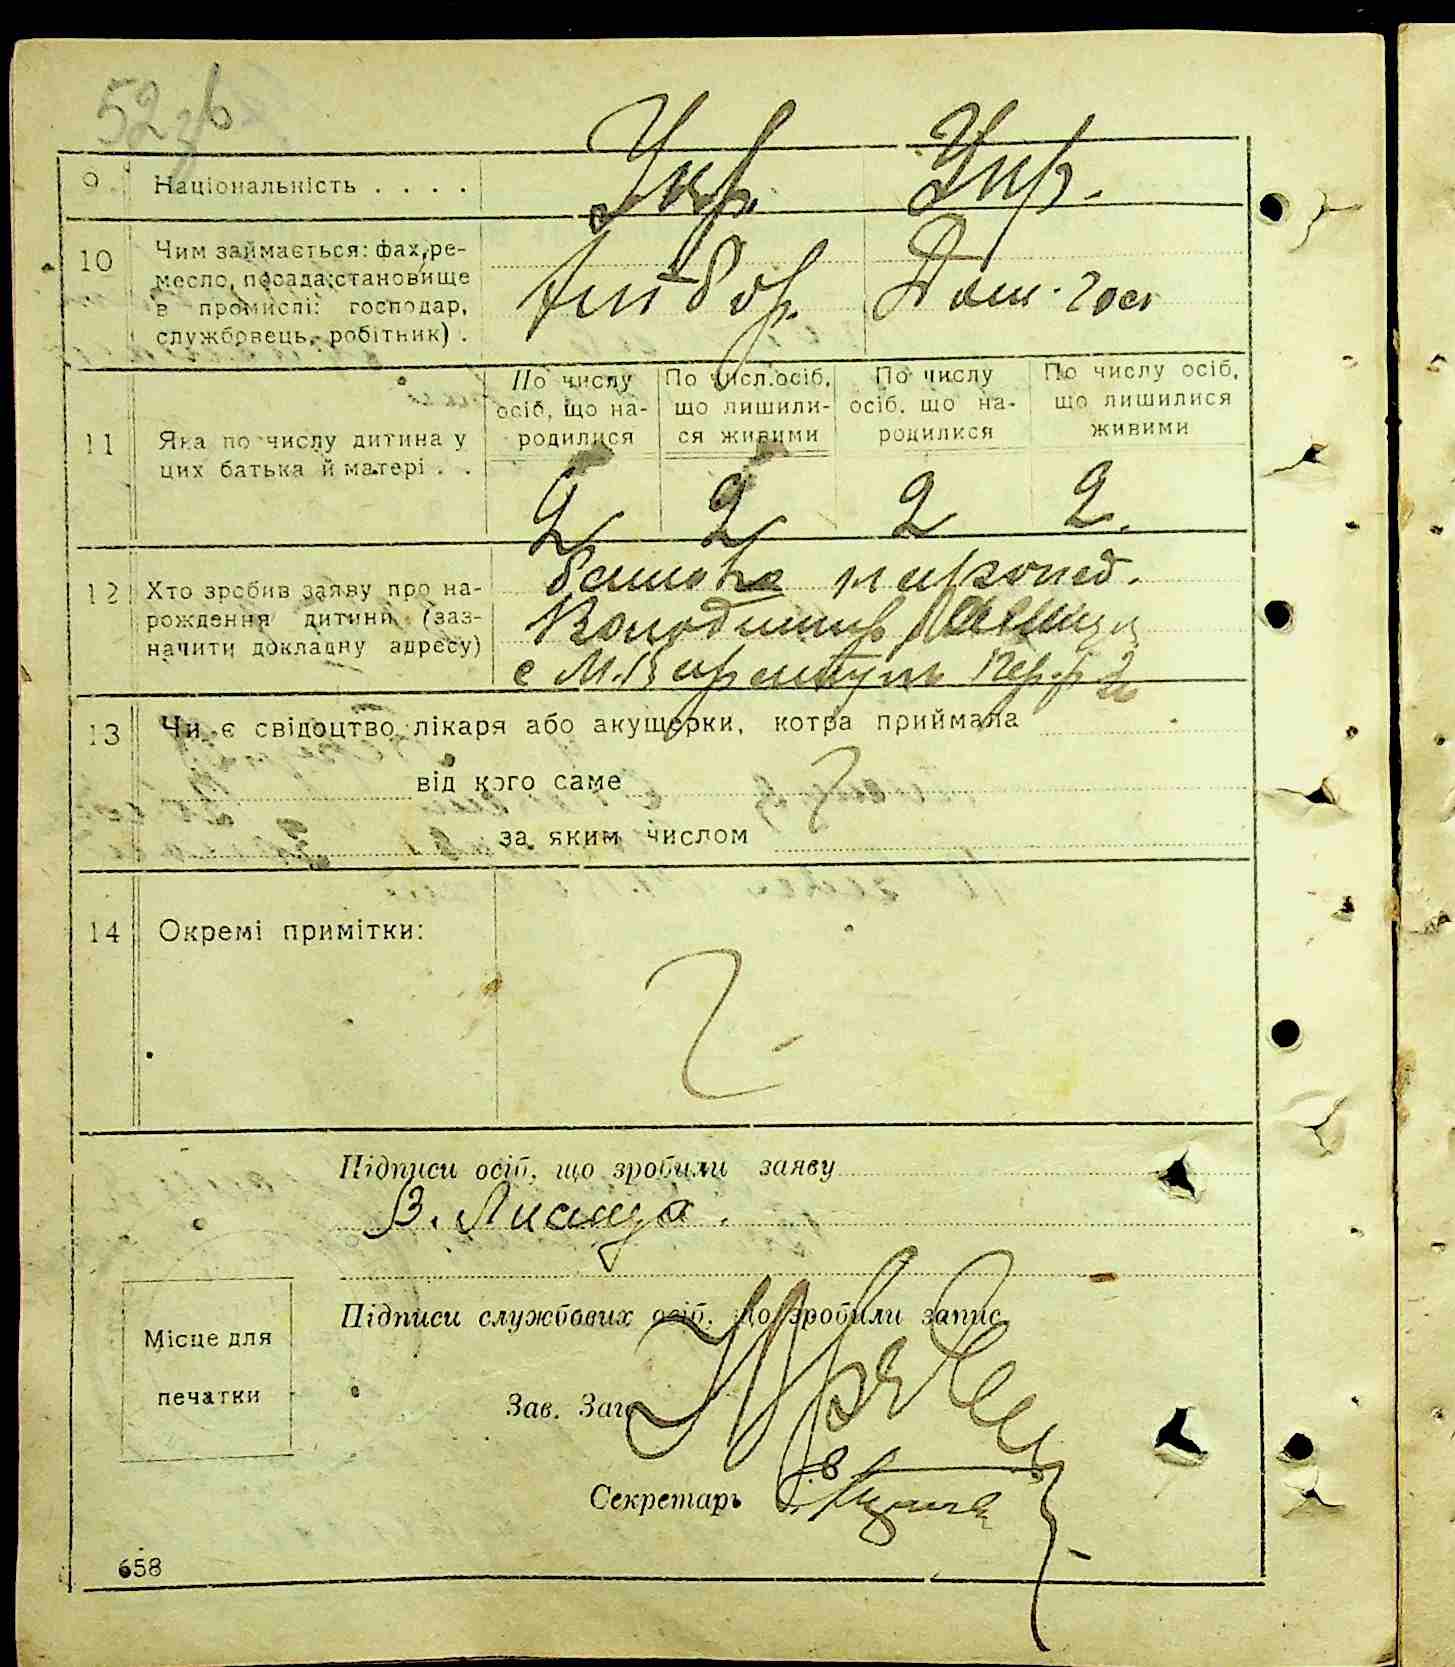 52 зв
9 Національність . . . . Укр. Укр.
10 Чим займається: фах, ре-
месло, посада; становище
в промислі: господар,
службовець, робітник) .
Дом. госп
11 Яка по числу дитина у
цих батька й матері . .
По числу
осіб, що на-
родилися
По числ. осіб,
що лишили-
ся живими
По числу
осіб, що на-
родилися
По числу осіб,
що лишилися
живими
2 2 2 2.
12 Хто зробив заяву про на-
рождення дитини (заз-
начити докладну адресу)
батько
Володимир Лисиця
с М.
13 Чи є свідоцтво лікаря або акушорки, котра приймала
від кого саме
за яким числом
14 Окремі примітки:
Підписи осіб, що зробили заяву
В. Лисиця.
Підписи службових осіб, що зробили запис
Зав. Заг
Секретарь
Місце для
печатки
658